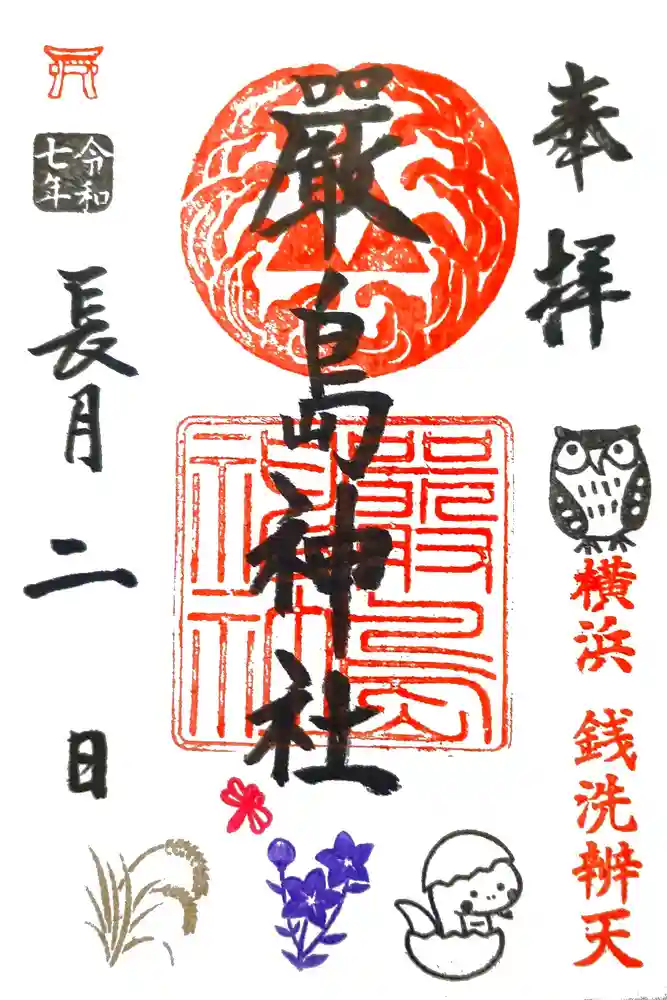 奉拝
横浜 銭洗辨天
嚴島神社
嚴島
神社
令和
七年
長月二日